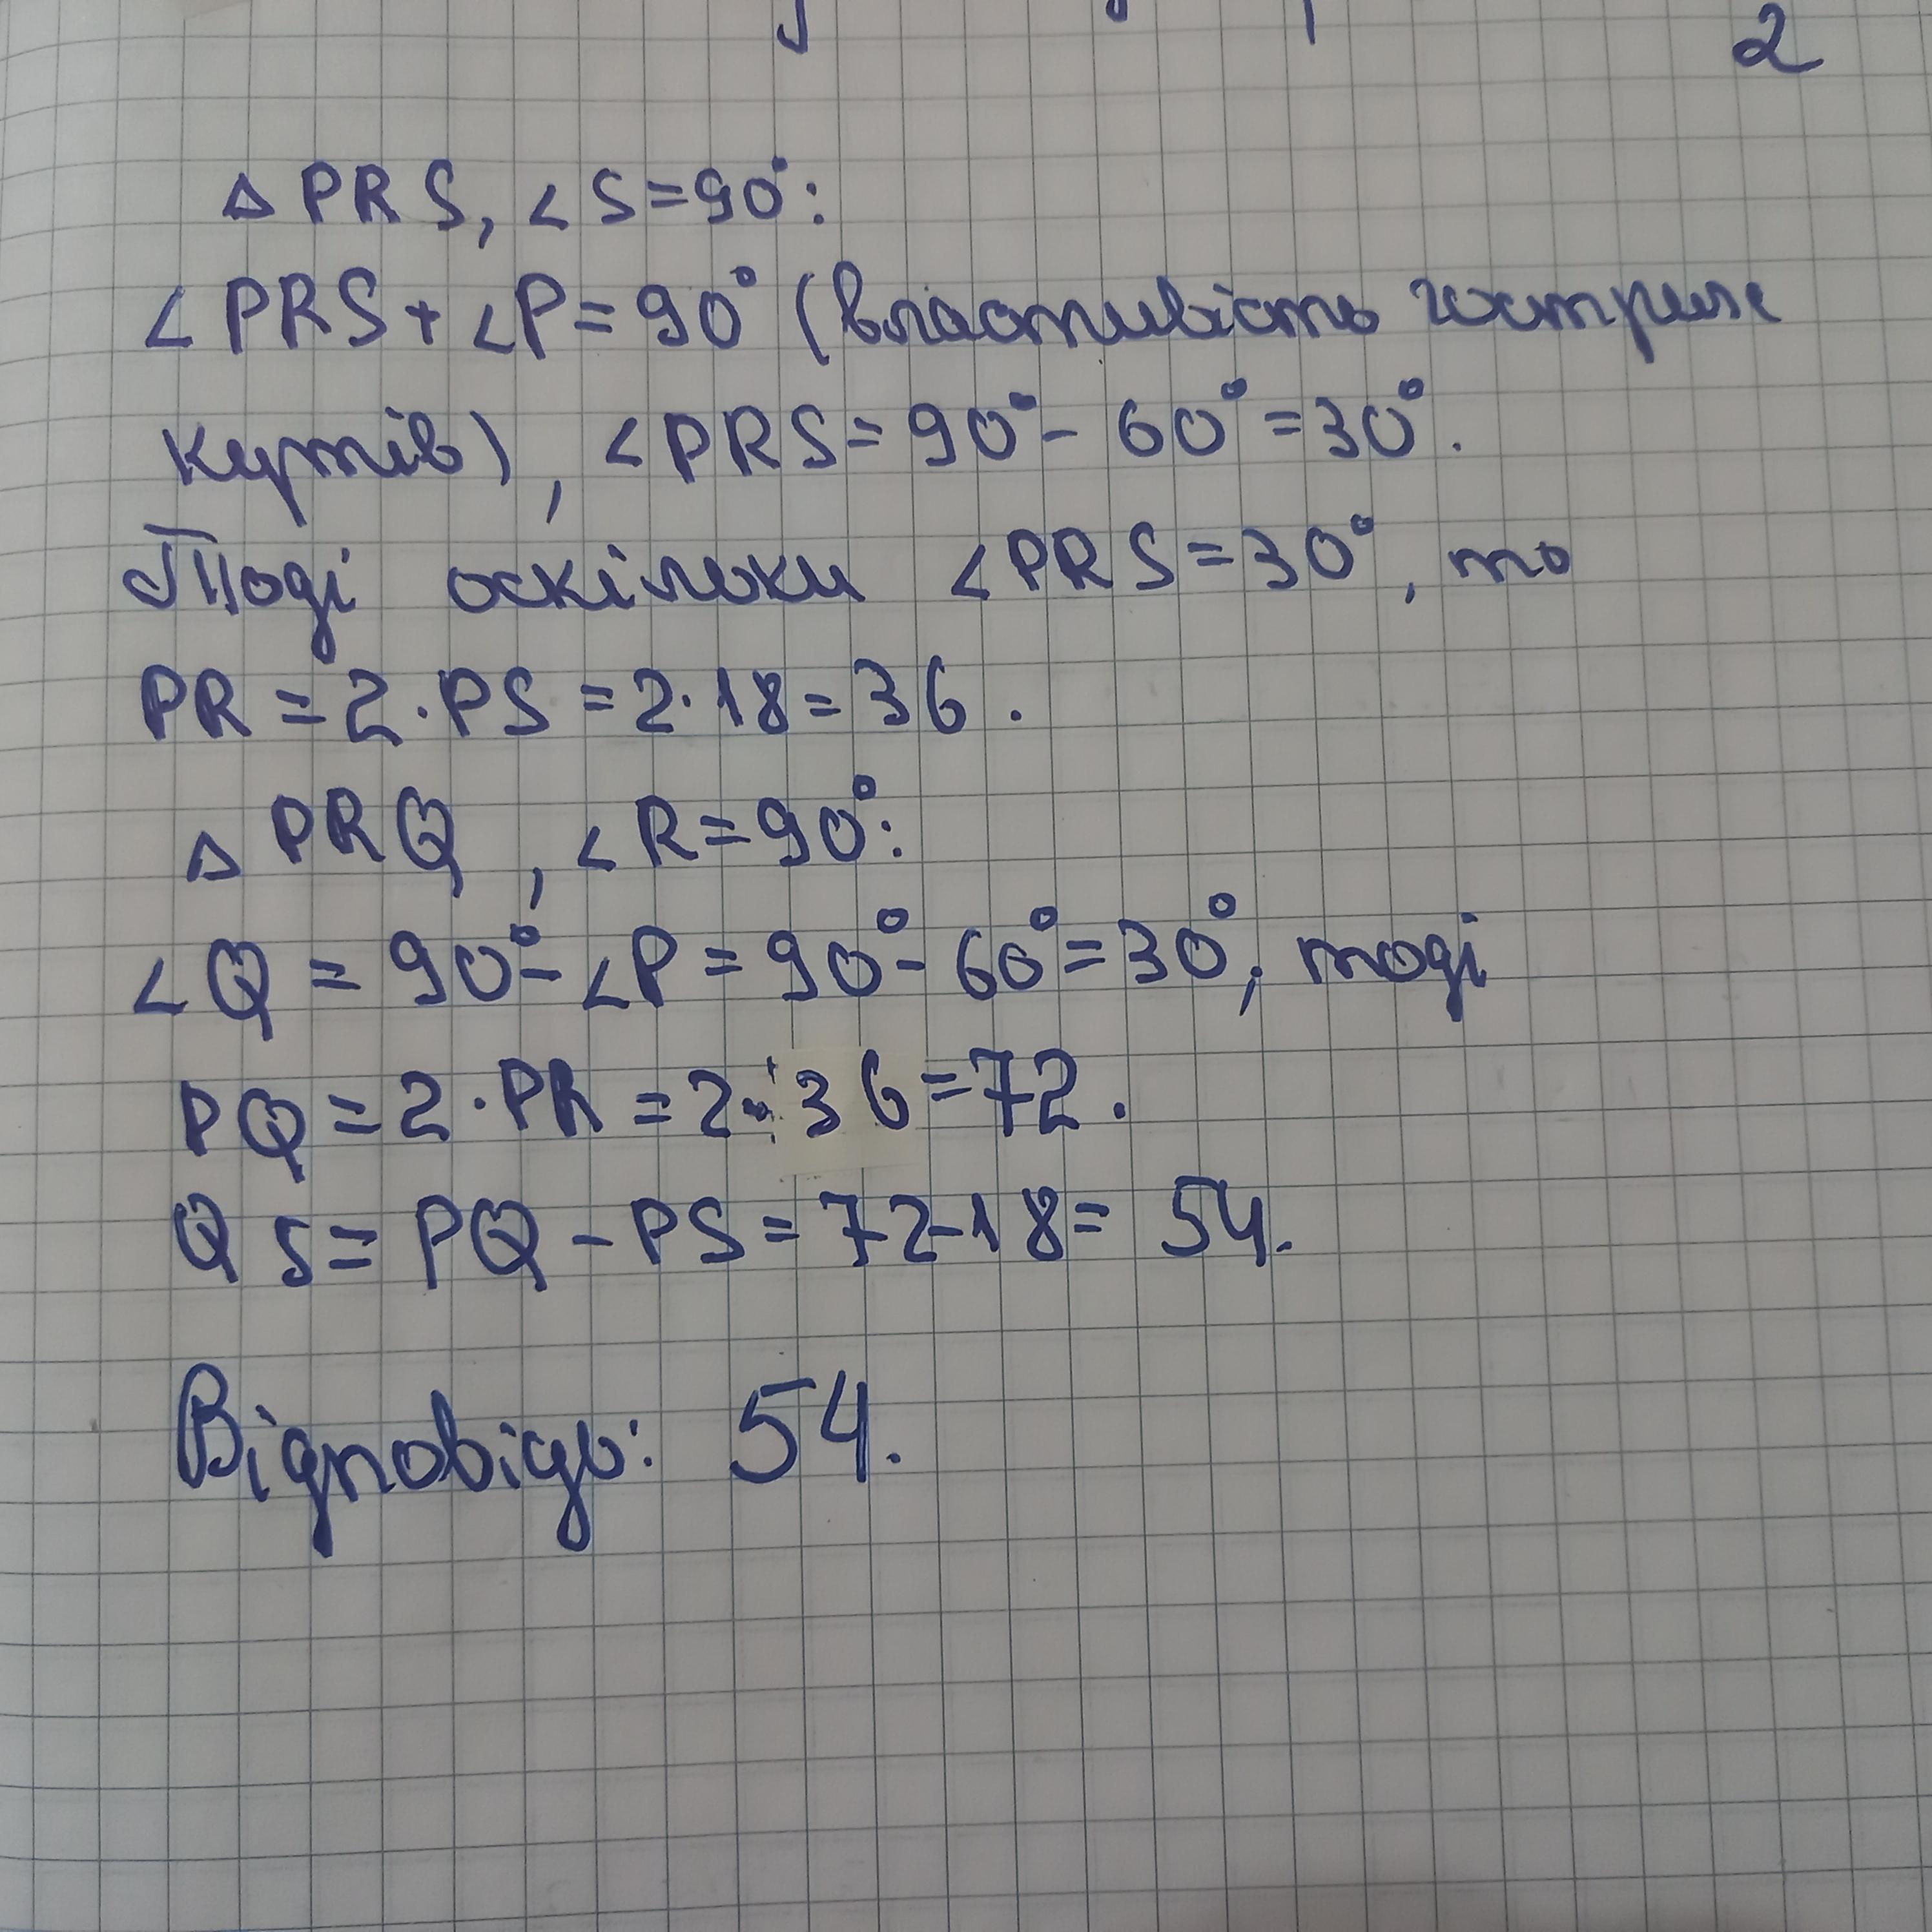 2
△ PRS, ∠S=90°:
∠PRS+∠P=90° (властивість гострих
кутів), ∠PRS=90°-60°=30°.
Тоді оскільки ∠PRS=30°, то
PR=2·PS=2·18=36.
△ PRQ, ∠R=90°:
∠Q=90°-∠P=90°-60°=30°, тоді
PQ=2·PR=2·36=72.
QS=PQ-PS=72-18=54.
Відповідь: 54.